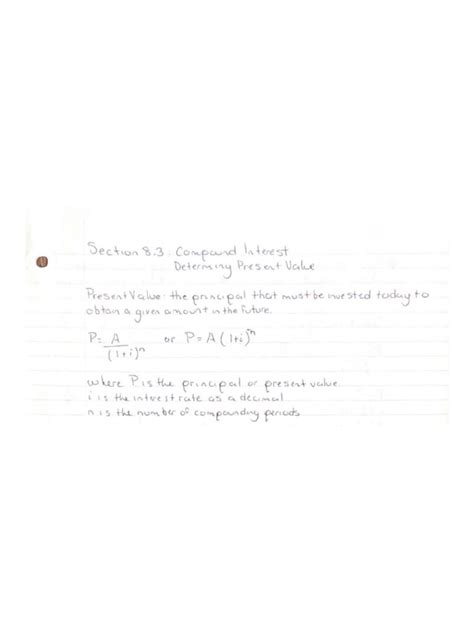 Section 8.3: Compound Interest
Determining Present Value
Present Value: the principal that must be invested today to
obtain a given amount in the future.
P = A / (1+i)^n or P = A (1+i)^-n
where P is the principal or present value
i is the interest rate as a decimal
n is the number of compounding periods